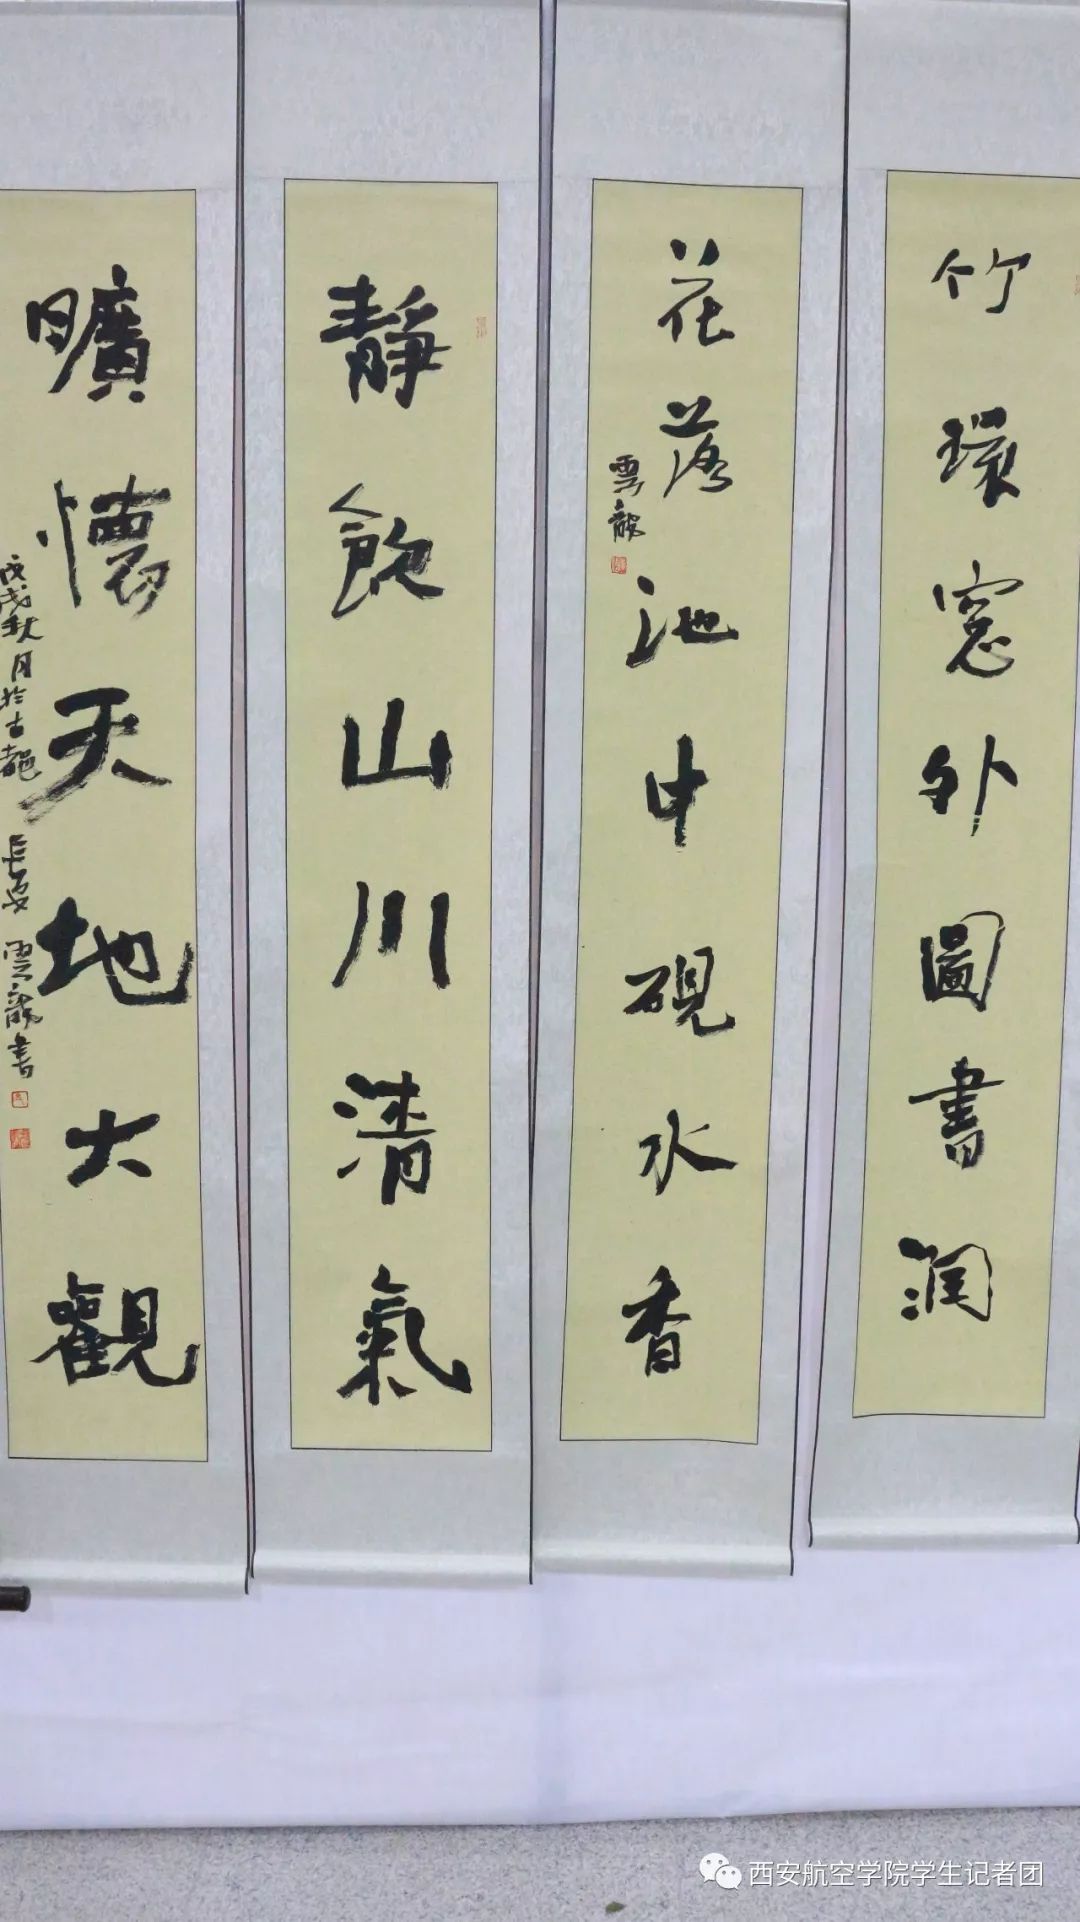 竹環窓外圖書潤
花落池中硯水香
雲龍
靜飲山川清氣
曠懷天地大觀
戊戌秋月於古都
長安 雲龍書
西安航空学院学生记者团